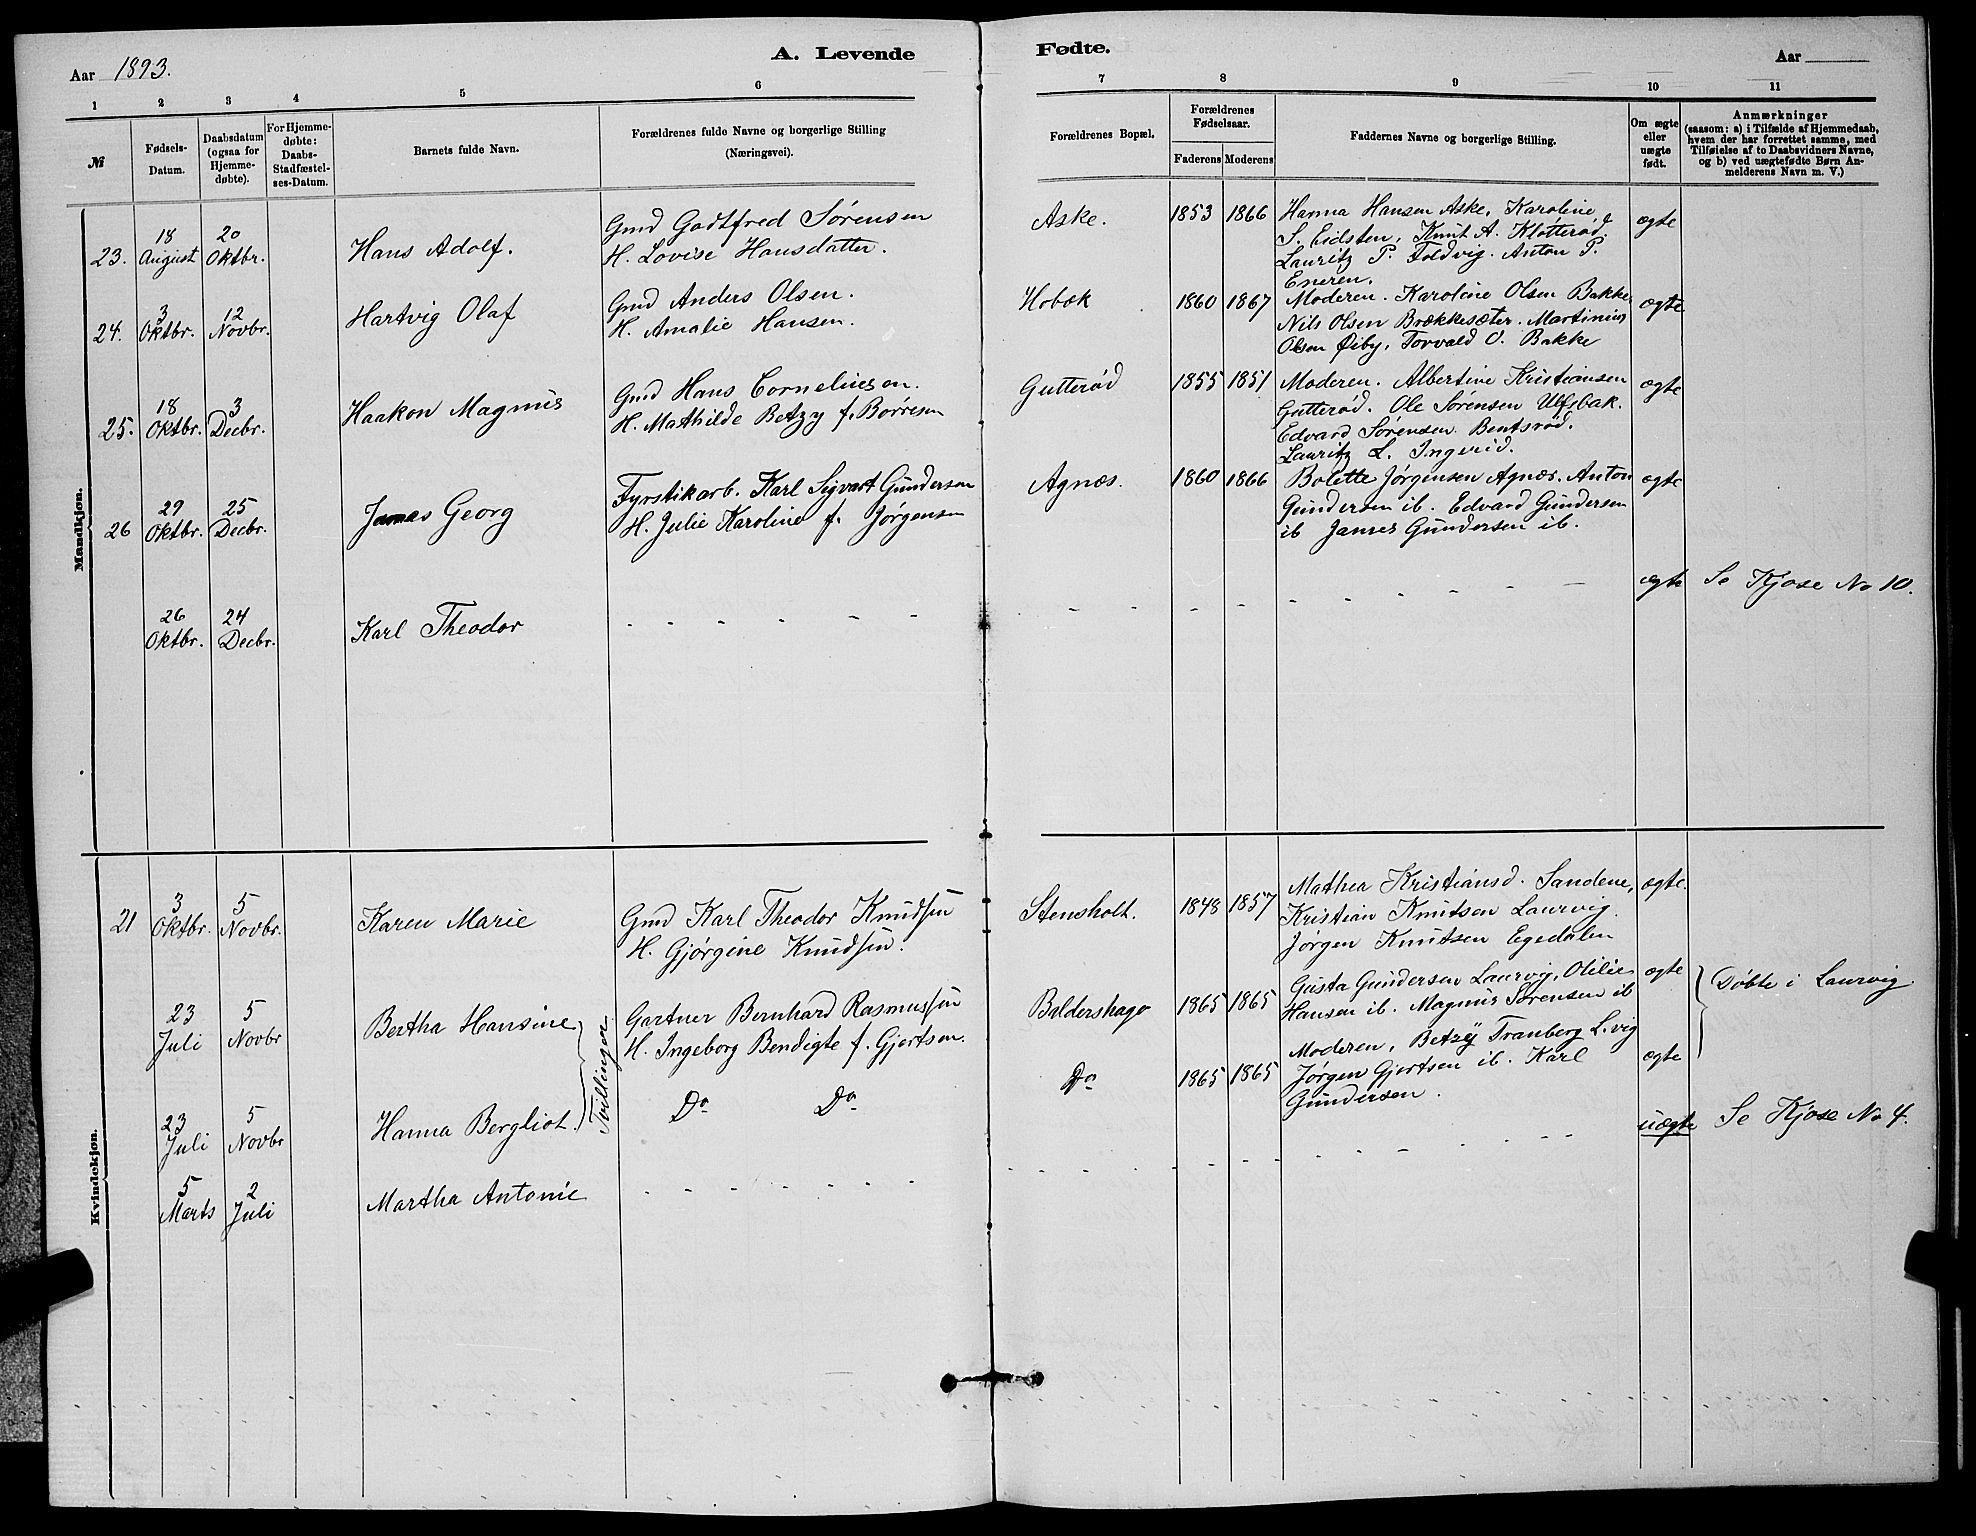 Aar 1893.
A. Levende
Fødte.
Aar
1 2 3 4 5 6
7 8 9 10 11
№
Fødsels-
Datum.
Daabsdatum
(ogsaa for
Hjemme-
døbte).
For Hjemme-
døbte:
Daabs-
Stadfæstel-
ses-Datum.
Barnets fulde Navn.
Forældrenes fulde Navne og borgerlige Stilling
(Næringsvei).
Forældrenes Bopæl.
Forældrenes
Fødselsaar.
Faderens Moderens
Faddernes Navne og borgerlige Stilling.
Om ægte
eller
uægte
født.
Anmærkninger
(saasom: a) i Tilfælde af Hjemmedaab,
hvem der har forrettet samme, med
Tilføielse af to Daabsvidners Navne,
og b) ved uægtefødte Børn An-
melderens Navn m. V.)
Mandkjøn.
23.
18
August
20
Oktbr.
Hans Adolf.
Gmd Godtfred Sørensen
H. Lovise Hansdatter.
Aske.
1853 1866
Hanna Hansen Aske, Karoline
S. Eidsten, Knut A. Kløtterød.
Lauritz P. Foldvig. Anton P.
Eneren.
ægte
24.
3
Oktbr.
12
Novbr.
Hartvig Olaf
Gmd Anders Olsen.
H. Amalie Hansen.
Hobæk
1860 1867
Moderen. Karoline Olsen Bakke
Nils Olsen Brækkesæter. Martinius
Olsen Øiby, Torvald O. Bakke
ægte
25.
18
Oktbr.
3
Decbr.
Haakon Magnus
Gmd Hans Corneliusen.
H. Mathilde Betzy f. Børresen
Gutterød
1855 1851
Moderen. Albertine Kristiansen
Gutterød. Ole Sørensen Ulfsbak.
Edvard Sørensen Bentsrød.
Lauritz L. Ingvrid.
ægte
26
29
Oktbr.
25
Decbr.
Jamas Georg
Fyrstikarb. Karl Sigvart Gundersen
H. Julie Karoline f. Jørgensen
Agnæs.
1860 1866
Bolette Jørgensen Agnæs. Anton
Gundersen ib. Edvard Gundersen
ib James Gundersen ib.
ægte
26
Oktbr.
24
Decbr.
Karl Theodor
- - - - - -
ægte
Se Kjose No 10.
Kvindekjøn.
21
3
Oktbr.
5
Novbr.
Karen Marie
Gmd Karl Theodor Knudsen
H. Gjørgine Knudsen.
Stensholt.
1848 1857
Mathea Kristiansd. Sandene,
Kristian Knutsen Laurvig.
Jørgen Knutsen Egedalen
ægte.
23
Juli
5
Novbr
Bertha Hansine
Tvillinger
Gartner Bernhard Rasmussen
H. Ingeborg Bendigte f. Gjertsen.
Baldershage
1865 1865
Gusta Gundersen Laurvig, Otilie
Hansen ib. Magnus Sørensen ib
ægte
Døbte i Laurvig
23
Juli
5
Novbr
Hanna Bergliot.
Do Do
Do
1865 1865
Moderen, Betzy Tranberg L.vig
Jørgen Gjertsen ib. Karl
Gundersen.
ægte
5
Marts
2
Juli
Martha Antonie
- - - - - - -
uægte
Se Kjose No 4.